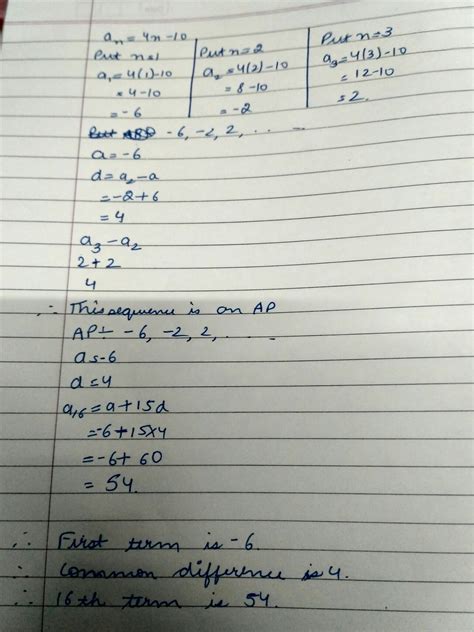 aₙ = 4n-10
Put n=1
a₁ = 4(1)-10
= 4-10
= -6
Put n=2
a₂ = 4(2)-10
= 8-10
= -2
Put n=3
a₃ = 4(3)-10
= 12-10
= 2.
-6, -2, 2, ....
a = -6
d = a₂-a
= -2+6
= 4
a₃-a₂
2+2
4
∴ This sequence is an AP
AP:- -6, -2, 2, ....
a = -6
d = 4
a₁₆ = a+15d
= -6+15×4
= -6+60
= 54.
∴ First term is -6.
∴ Common difference is 4.
∴ 16th term is 54.